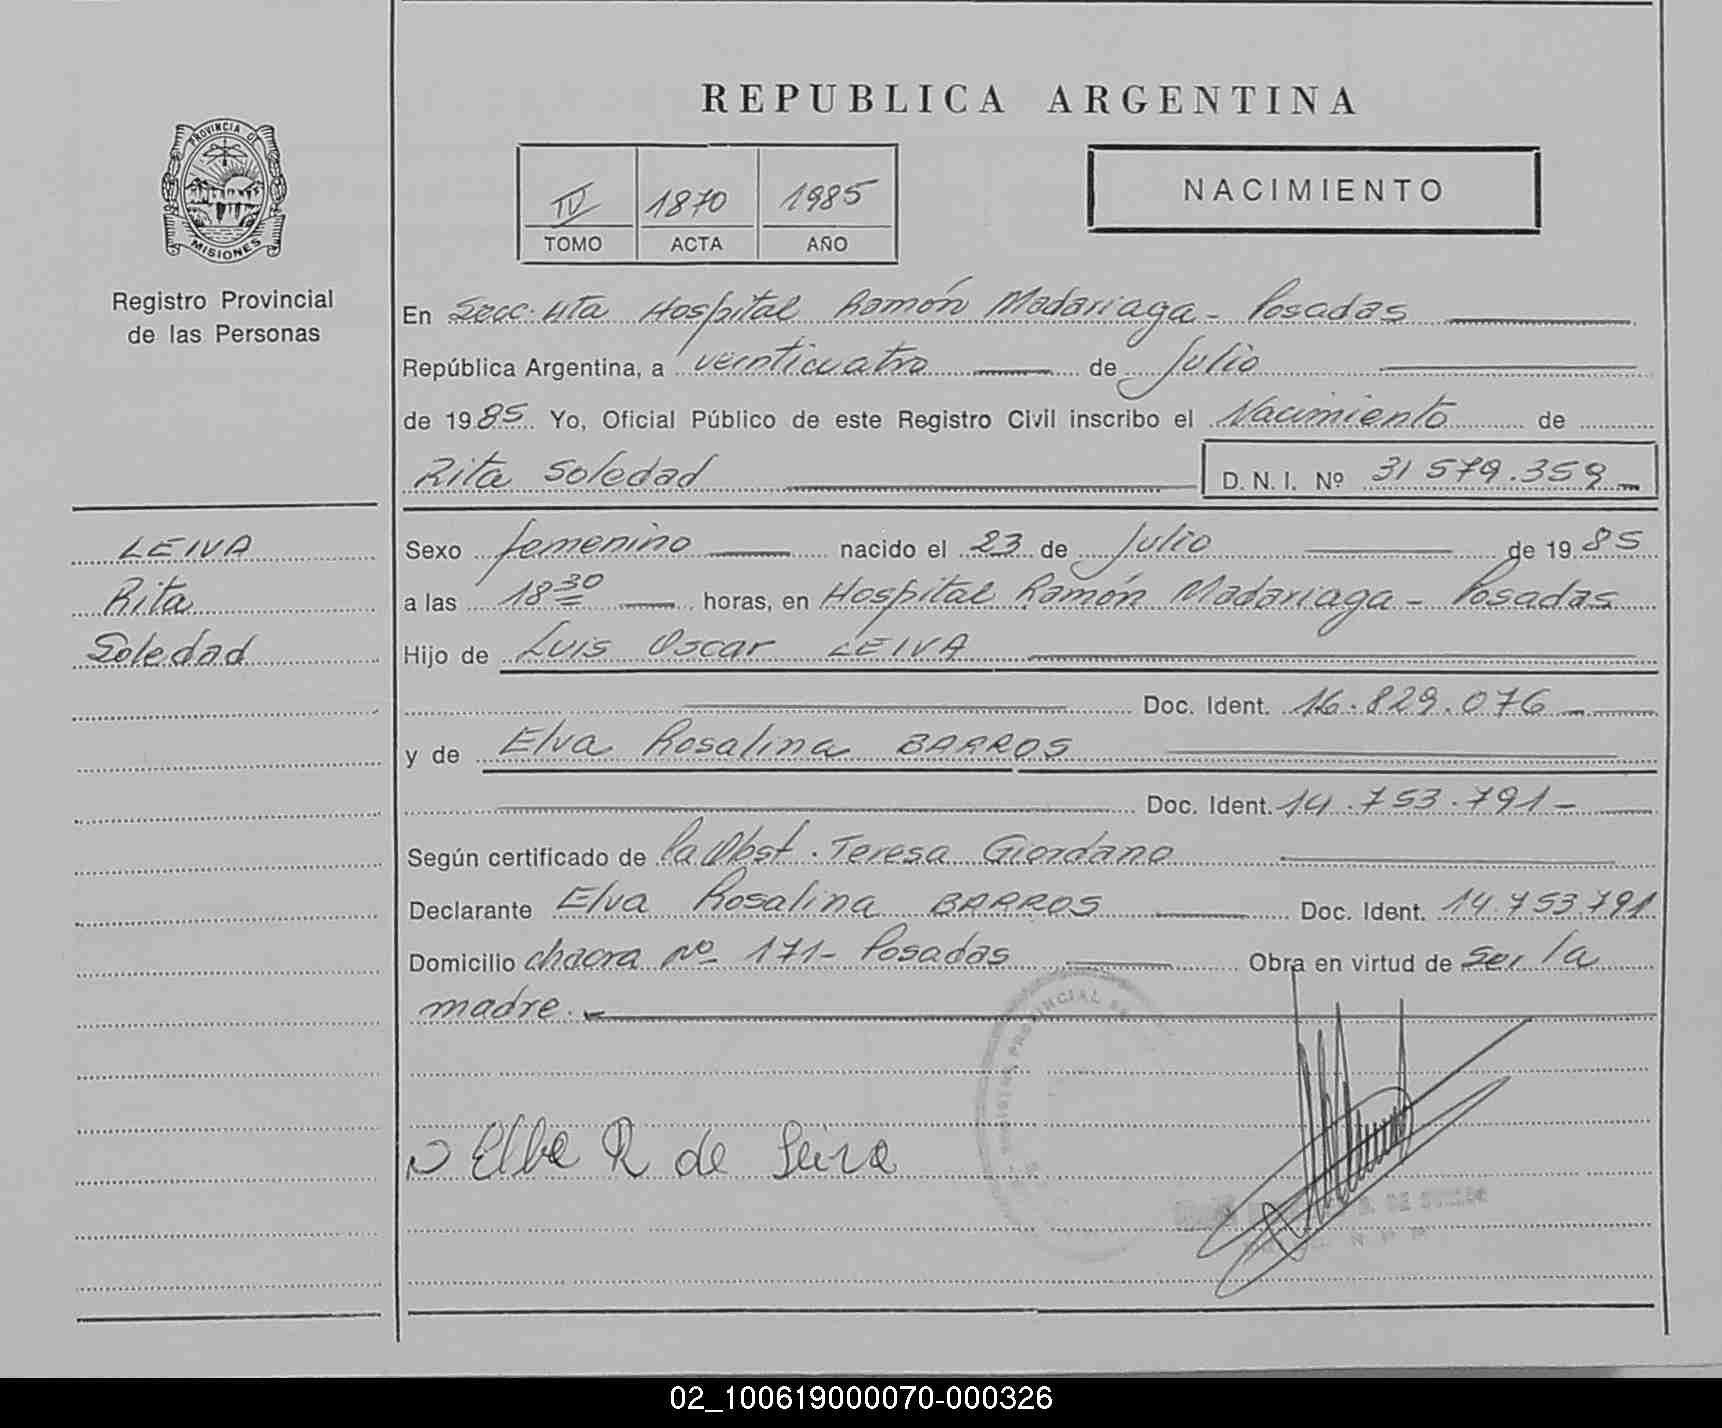 REPUBLICA ARGENTINA
PROVINCIA DE
MISIONES
Registro Provincial
de las Personas
IV 1870 1985
TOMO ACTA AÑO
NACIMIENTO
En Secc. 4ta Hospital Ramón Madariaga - Posadas
República Argentina, a veinticuatro de Julio
de 1985. Yo, Oficial Público de este Registro Civil inscribo el Nacimiento de
Rita Soledad D.N.I. Nº 31 579.359
LEIVA
Rita
Soledad
Sexo femenino nacido el 23 de Julio de 1985
a las 18 30 horas, en Hospital Ramón Madariaga - Posadas
Hijo de Luis Oscar LEIVA
Doc. Ident. 16.829.076
y de Elva Rosalina BARROS
Doc. Ident. 14.753.791-
Según certificado de la Obst. Teresa Giordano
Declarante Elva Rosalina BARROS Doc. Ident. 14.753.791
Domicilio chacra Nº 171- Posadas Obra en virtud de ser la
madre.
Elba R de Leiva
02_100619000070-000326